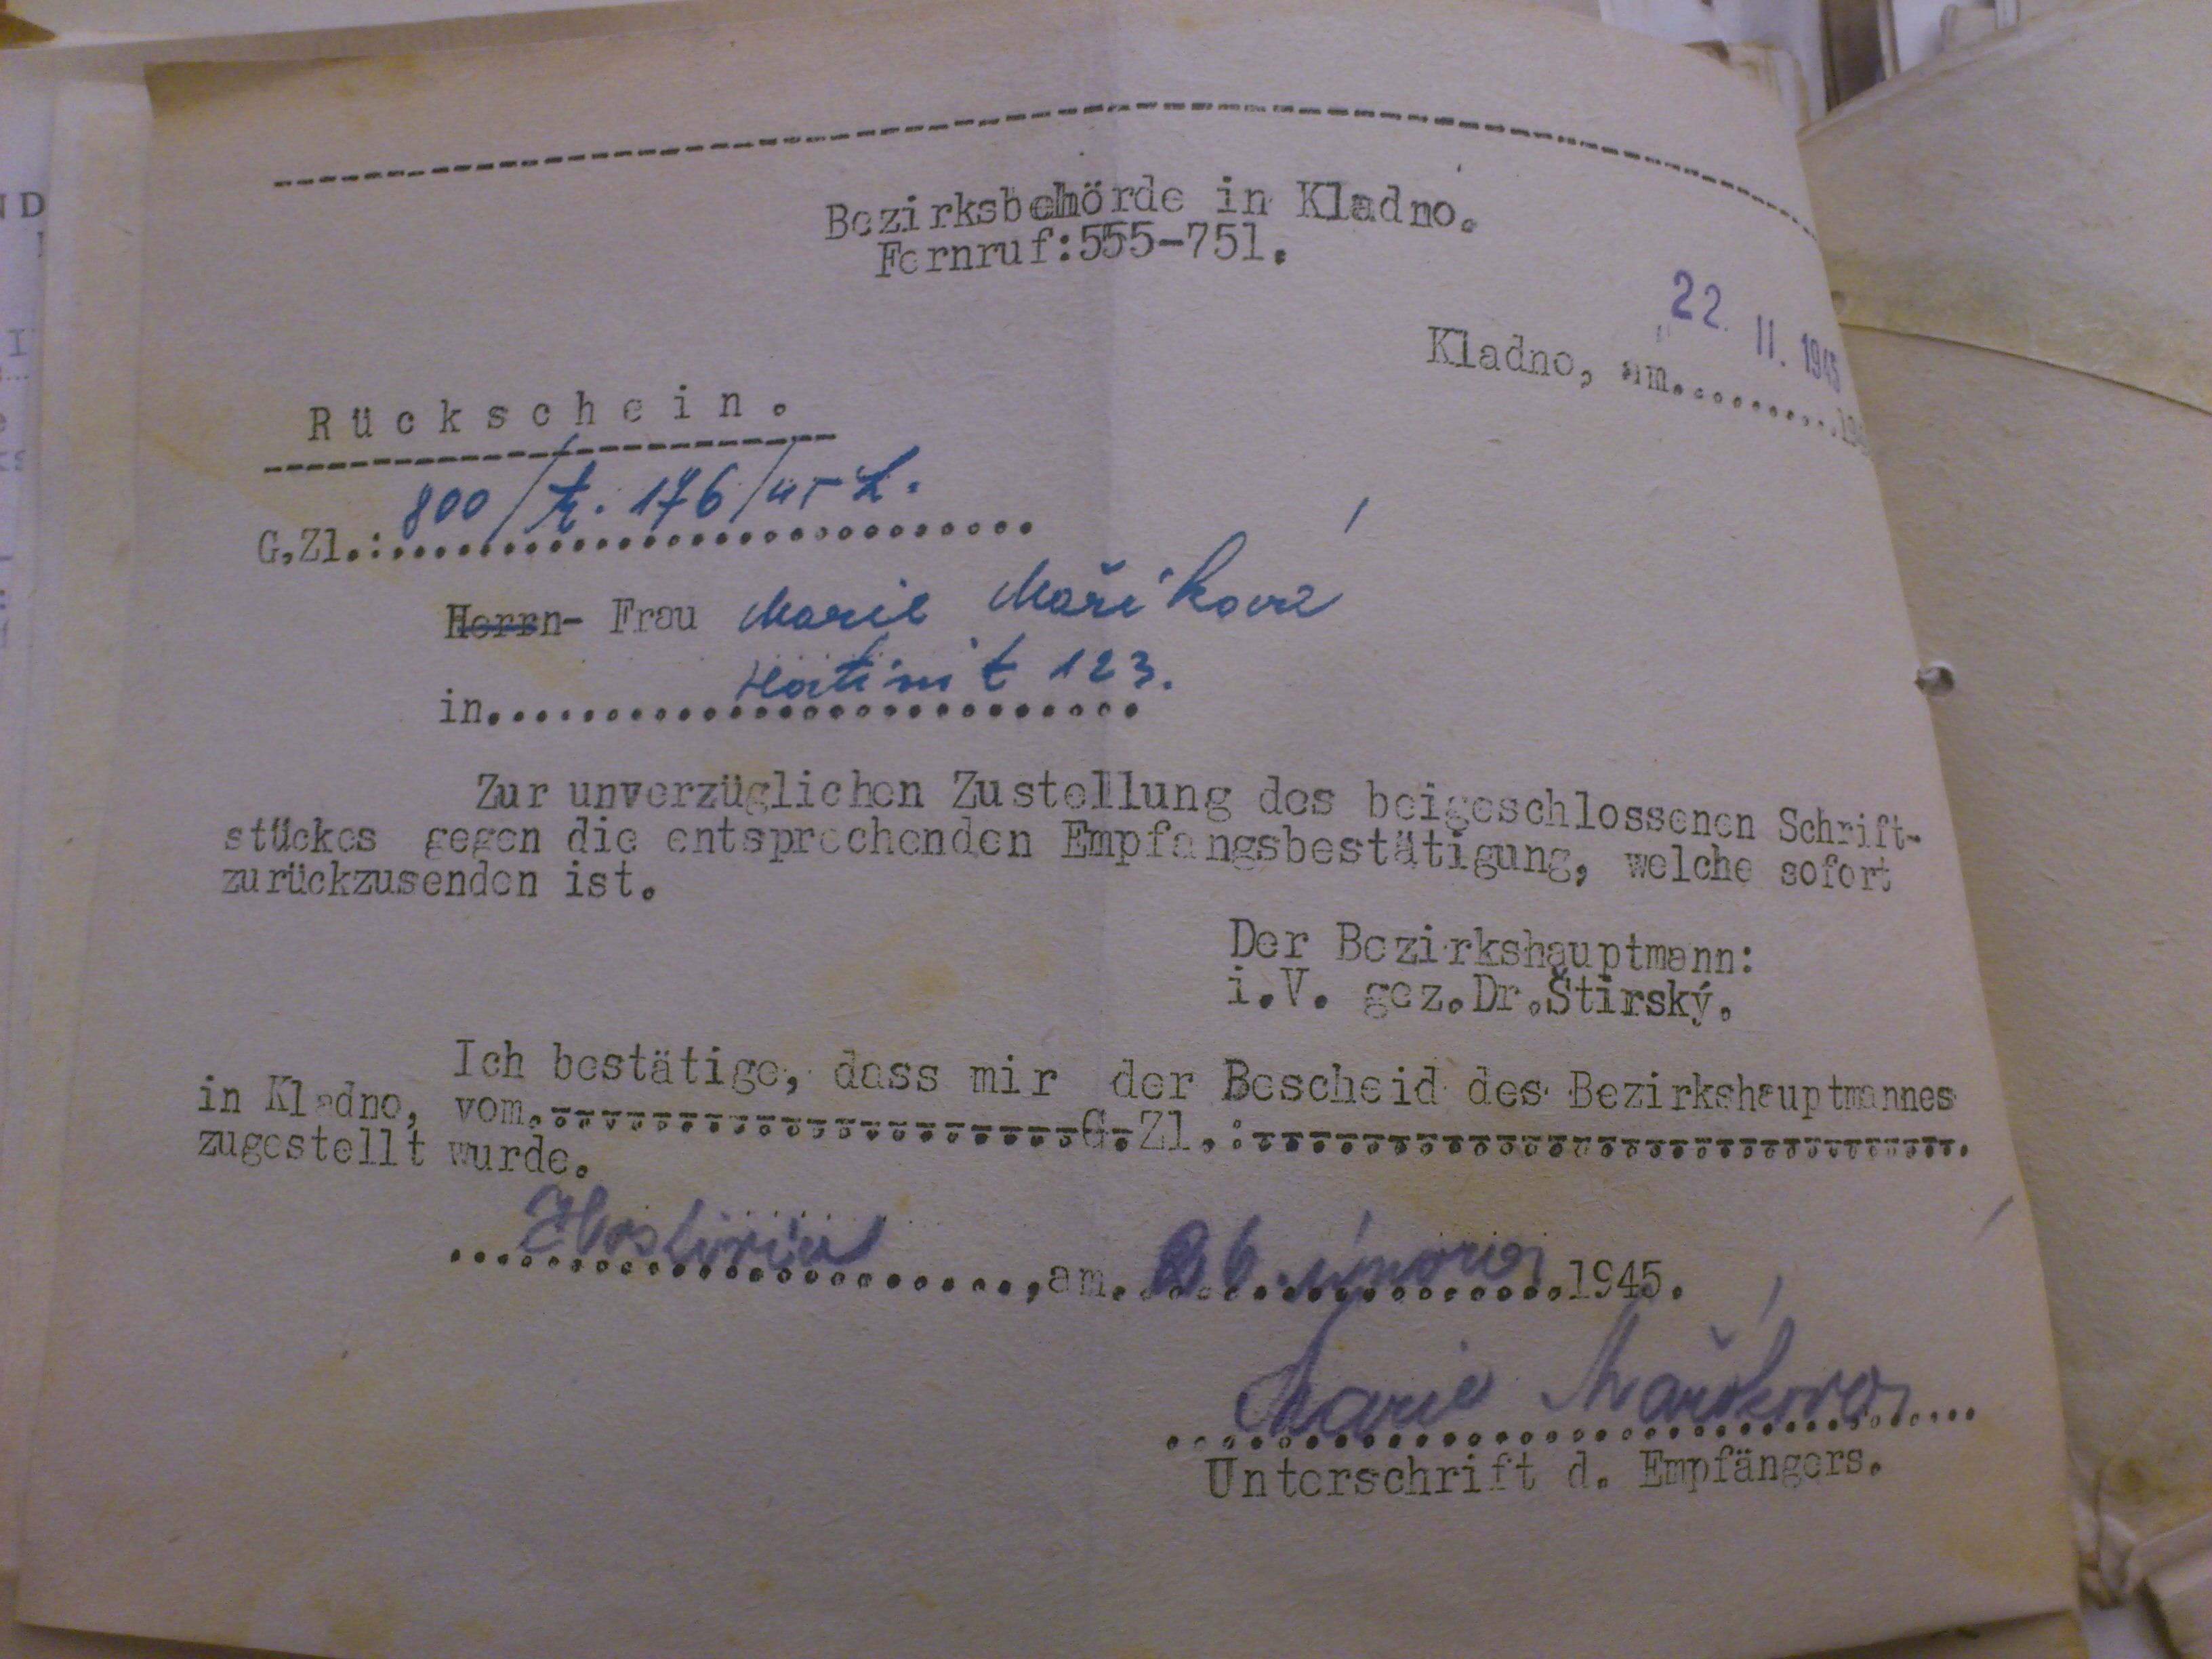 Bezirksbehörde in Kladno.
Fernruf:555-751.
22. II. 1945
Kladno, am..........194
Rückschein.
G.Zl.: 800/
Herrn- Frau Marie Maříková
in 123.
Zur unverzüglichen Zustellung des beigeschlossenen Schrift-
stückes gegen die entsprechenden Empfangsbestätigung, welche sofort
zurückzusenden ist.
Der Bezirkshauptmann:
i.V. gez.Dr.Štirský.
Ich bestätige, dass mir der Bescheid des Bezirkshauptmannes
in Kladno, vom G.Zl.:
zugestellt wurde.
, am 26. února 1945.
Marie Maříková
Unterschrift d. Empfängers.